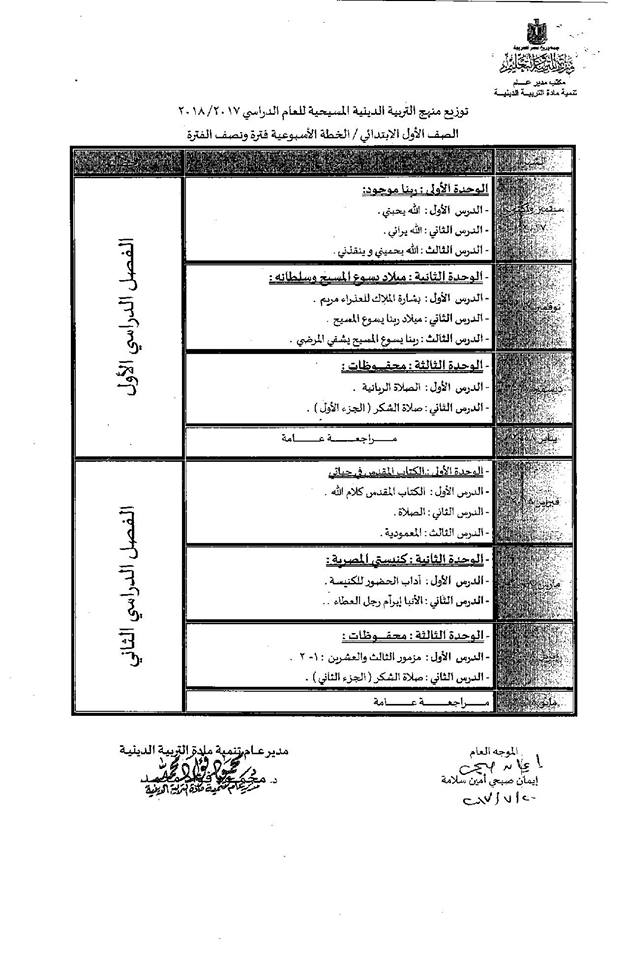 جمهورية مصر العربية
وزارة التربية والتعليم
مكتب مدير عام
تنمية مادة التربية الدينية
توزيع منهج التربية الدينية المسيحية للعام الدراسي ٢٠١٨/٢٠١٧
الصف الأول الابتدائي / الخطة الأسبوعية فترة ونصف الفترة
الوحدة الأولى : ربنا موجود:
- الدرس الأول : الله يحبني .
- الدرس الثاني : الله يراني .
- الدرس الثالث : الله يحميني و ينقذني .
الفصل الدراسي الأول
نوفمبر
- الوحدة الثانية : ميلاد يسوع المسيح وسلطانه :
- الدرس الأول : بشارة الملاك للعذراء مريم .
- الدرس الثاني : ميلاد ربنا يسوع المسيح .
- الدرس الثالث : ربنا يسوع المسيح يشفي المرضي .
ديسمبر
- الوحدة الثالثة : محفوظات :
- الدرس الأول : الصلاة الربانية .
- الدرس الثاني : صلاة الشكر ( الجزء الأول ) .
يناير
مراجعة عامة
فبراير
- الوحدة الأولى : الكتاب المقدس في حياتي
- الدرس الأول : الكتاب المقدس كلام الله .
- الدرس الثاني : الصلاة .
- الدرس الثالث : المعمودية .
الفصل الدراسي الثاني
مارس
- الوحدة الثانية : كنيستي المصرية :
- الدرس الأول : آداب الحضور للكنيسة .
- الدرس الثاني : الأنبا إبرآم رجل العطاء ..
- الوحدة الثالثة : محفوظات :
- الدرس الأول : مزمور الثالث والعشرين : ١- ٢ .
- الدرس الثاني : صلاة الشكر ( الجزء الثاني ) .
مايو
مراجعة عامة
الموجه العام
إيمان صبحي
إيمان صبحي أمين سلامة
مدير عام تنمية مادة التربية الدينية
مدير عام تنمية مادة التربية الدينية